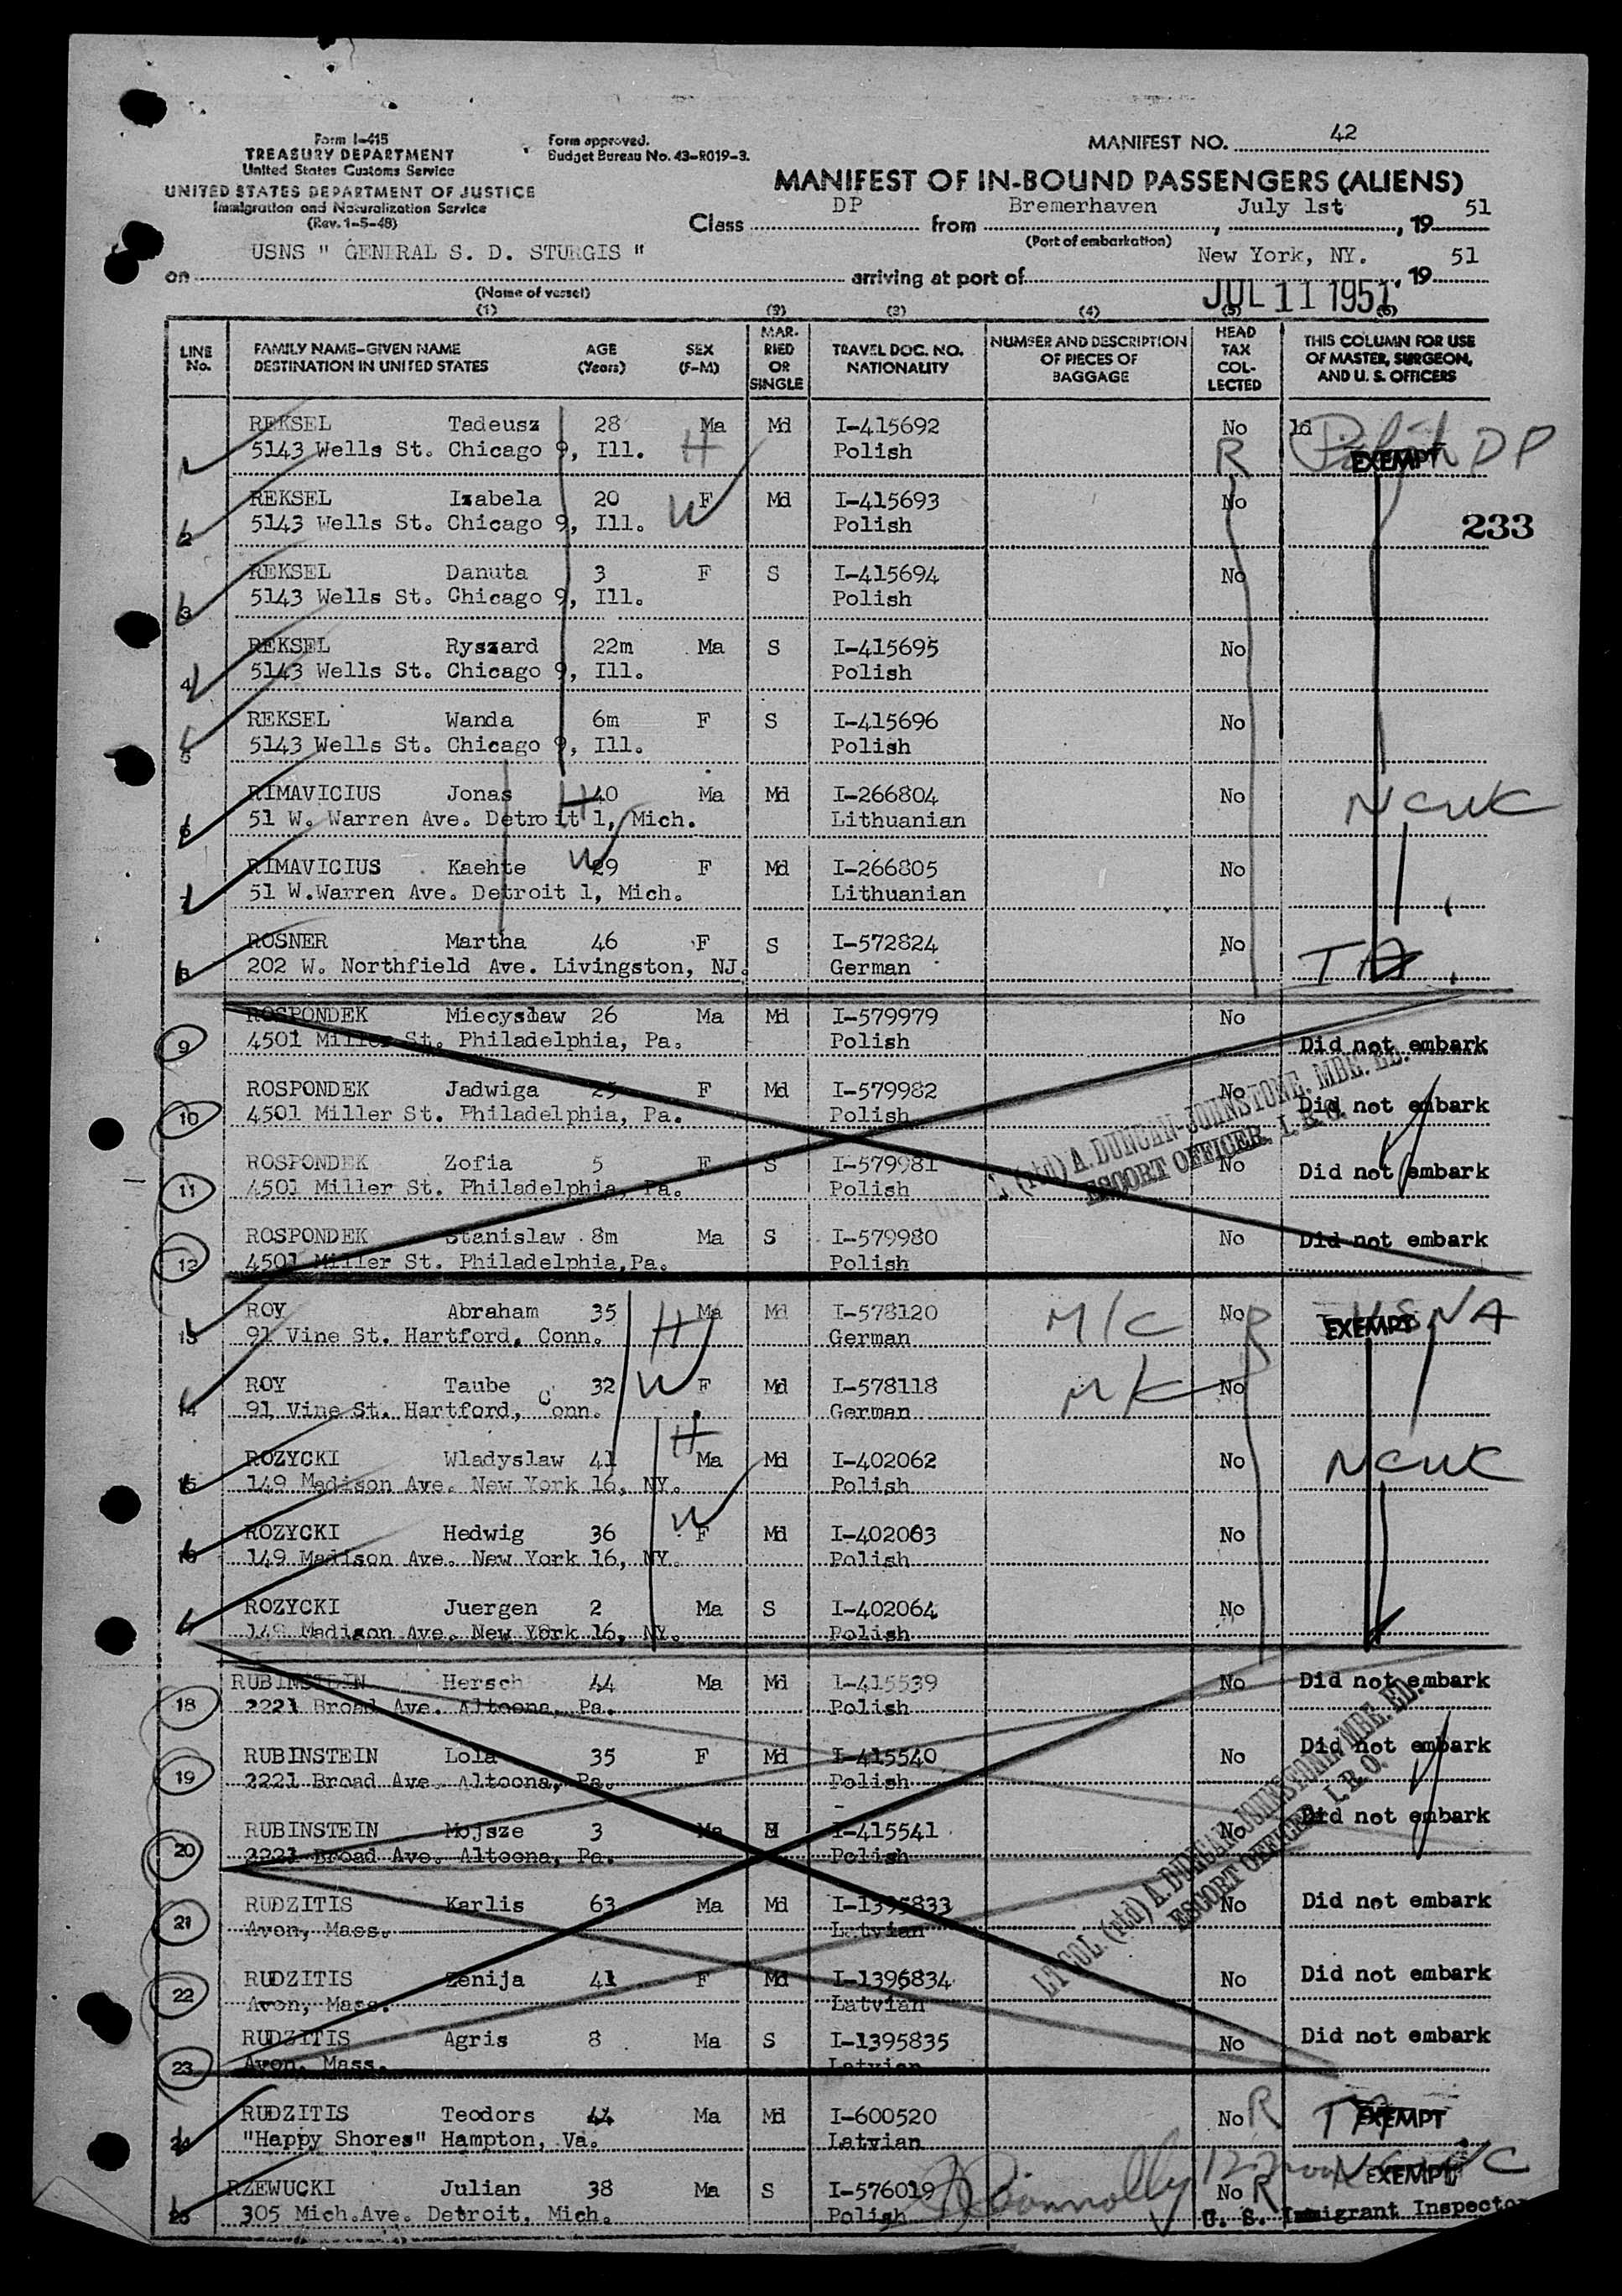 Form I-415
TREASURY DEPARTMENT
United States Customs Service
UNITED STATES DEPARTMENT OF JUSTICE
Immigration and Naturalization Service
(Rev. 1-5-48)
Form approved.
Budget Bureau No. 43-R019-3.
MANIFEST NO. 42
MANIFEST OF IN-BOUND PASSENGERS (ALIENS)
Class DP from Bremerhaven, July 1st, 19 51
(Port of embarkation)
on USNS " GENERAL S. D. STURGIS " arriving at port of New York, NY. 19 51
(Name of vessel)
JUL 11 1951
(1) (2) (3) (4) (5) (6)
LINE No. FAMILY NAME-GIVEN NAME DESTINATION IN UNITED STATES AGE (Years) SEX (F-M) MARRIED OR SINGLE TRAVEL DOC. NO. NATIONALITY NUMBER AND DESCRIPTION OF PIECES OF BAGGAGE HEAD TAX COLLECTED THIS COLUMN FOR USE OF MASTER, SURGEON, AND U. S. OFFICERS
REKSEL Tadeusz 28 Ma Md I-415692 No ld
1 5143 Wells St. Chicago 9, Ill. H Polish R EXEMPT Polish DP
REKSEL Izabela 20 F Md I-415693 No
2 5143 Wells St. Chicago 9, Ill. W Polish 233
REKSEL Danuta 3 F S I-415694 No
3 5143 Wells St. Chicago 9, Ill. Polish
REKSEL Ryszard 22m Ma S I-415695 No
4 5143 Wells St. Chicago 9, Ill. Polish
REKSEL Wanda 6m F S I-415696 No
5 5143 Wells St. Chicago 9, Ill. Polish
RIMAVICIUS Jonas H 40 Ma Md I-266804 No NCWC
6 51 W. Warren Ave. Detroit 1, Mich. Lithuanian
RIMAVICIUS Kaehte W 29 F Md I-266805 No
7 51 W.Warren Ave. Detroit 1, Mich. Lithuanian
ROSNER Martha 46 F S I-572824 No
8 202 W. Northfield Ave. Livingston, NJ. German TA
ROSPONDEK Miecyslaw 26 Ma Md I-579979 No
9 4501 Miller St. Philadelphia, Pa. Polish Did not embark
ROSPONDEK Jadwiga 25 F Md I-579982 No
10 4501 Miller St. Philadelphia, Pa. Polish Did not embark
ROSPONDEK Zofia 5 F S I-579981 No
11 4501 Miller St. Philadelphia, Pa. Polish Did not embark
(rtd) A. DUNCAN-JOHNSTONE, MBE. ED.
ESCORT OFFICER, I. R. O.
ROSPONDEK Stanislaw 8m Ma S I-579980 No Did not embark
12 4501 Miller St. Philadelphia,Pa. Polish
ROY Abraham 35 H Ma Md I-578120 M/C No R USNA
13 91 Vine St. Hartford, Conn. German EXEMPT
ROY Taube 32 W F Md I-578118 M/C No
14 91 Vine St. Hartford, Conn. German
ROZYCKI Wladyslaw 41 H Ma Md I-402062 No NCWC
15 149 Madison Ave. New York 16, NY. Polish
ROZYCKI Hedwig 36 W F Md I-402063 No
16 149 Madison Ave. New York 16, NY. Polish
ROZYCKI Juergen 2 Ma S I-402064 No
149 Madison Ave. New York 16, NY. Polish
RUBINSTEIN Hersch 44 Ma Md I-415539 No Did not embark
18 2221 Broad Ave. Altoona, Pa. Polish
RUBINSTEIN Lola 35 F Md I-415540 No Did not embark
19 2221 Broad Ave. Altoona, Pa. Polish
RUBINSTEIN Mojsze 3 Ma I-415541 No Did not embark
20 2221 Broad Ave. Altoona, Pa. Polish
RUDZITIS Karlis 63 Ma Md I-1395833 No Did not embark
21 Avon, Mass. Latvian
LT COL. (rtd) A. DUNCAN-JOHNSTONE, MBE. ED.
ESCORT OFFICER, I. R. O.
RUDZITIS Zenija 41 F Md I-1396834 No Did not embark
22 Avon, Mass. Latvian
RUDZITIS Agris 8 Ma S I-1395835 No Did not embark
23 Avon, Mass. Latvian
RUDZITIS Teodors 44 Ma Md I-600520 No R EXEMPT
24 "Happy Shores" Hampton, Va. Latvian
RZEWUCKI Julian 38 Ma S I-576019 No R EXEMPT
25 305 Mich.Ave. Detroit, Mich. Polish U. S. Immigrant Inspector